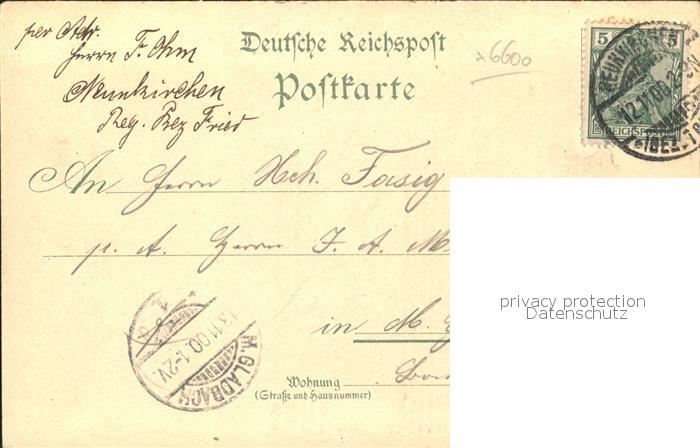 per Adr.
Herrn Fr. Ohm
Neunkirchen
Reg. Bez Trier
Deutsche Reichspost
Postkarte
x6600
5 5
REICHSPOST
NEUNKIRCHEN
12.11.00
(BEZ. T
An Herrn Hch. Fasig
p. A. Herrn J. A. M
in M. G
Wohnung
(Straße und Hausnummer)
13.11.00. 1-2V.
M. GLADBACH
privacy protection
Datenschutz